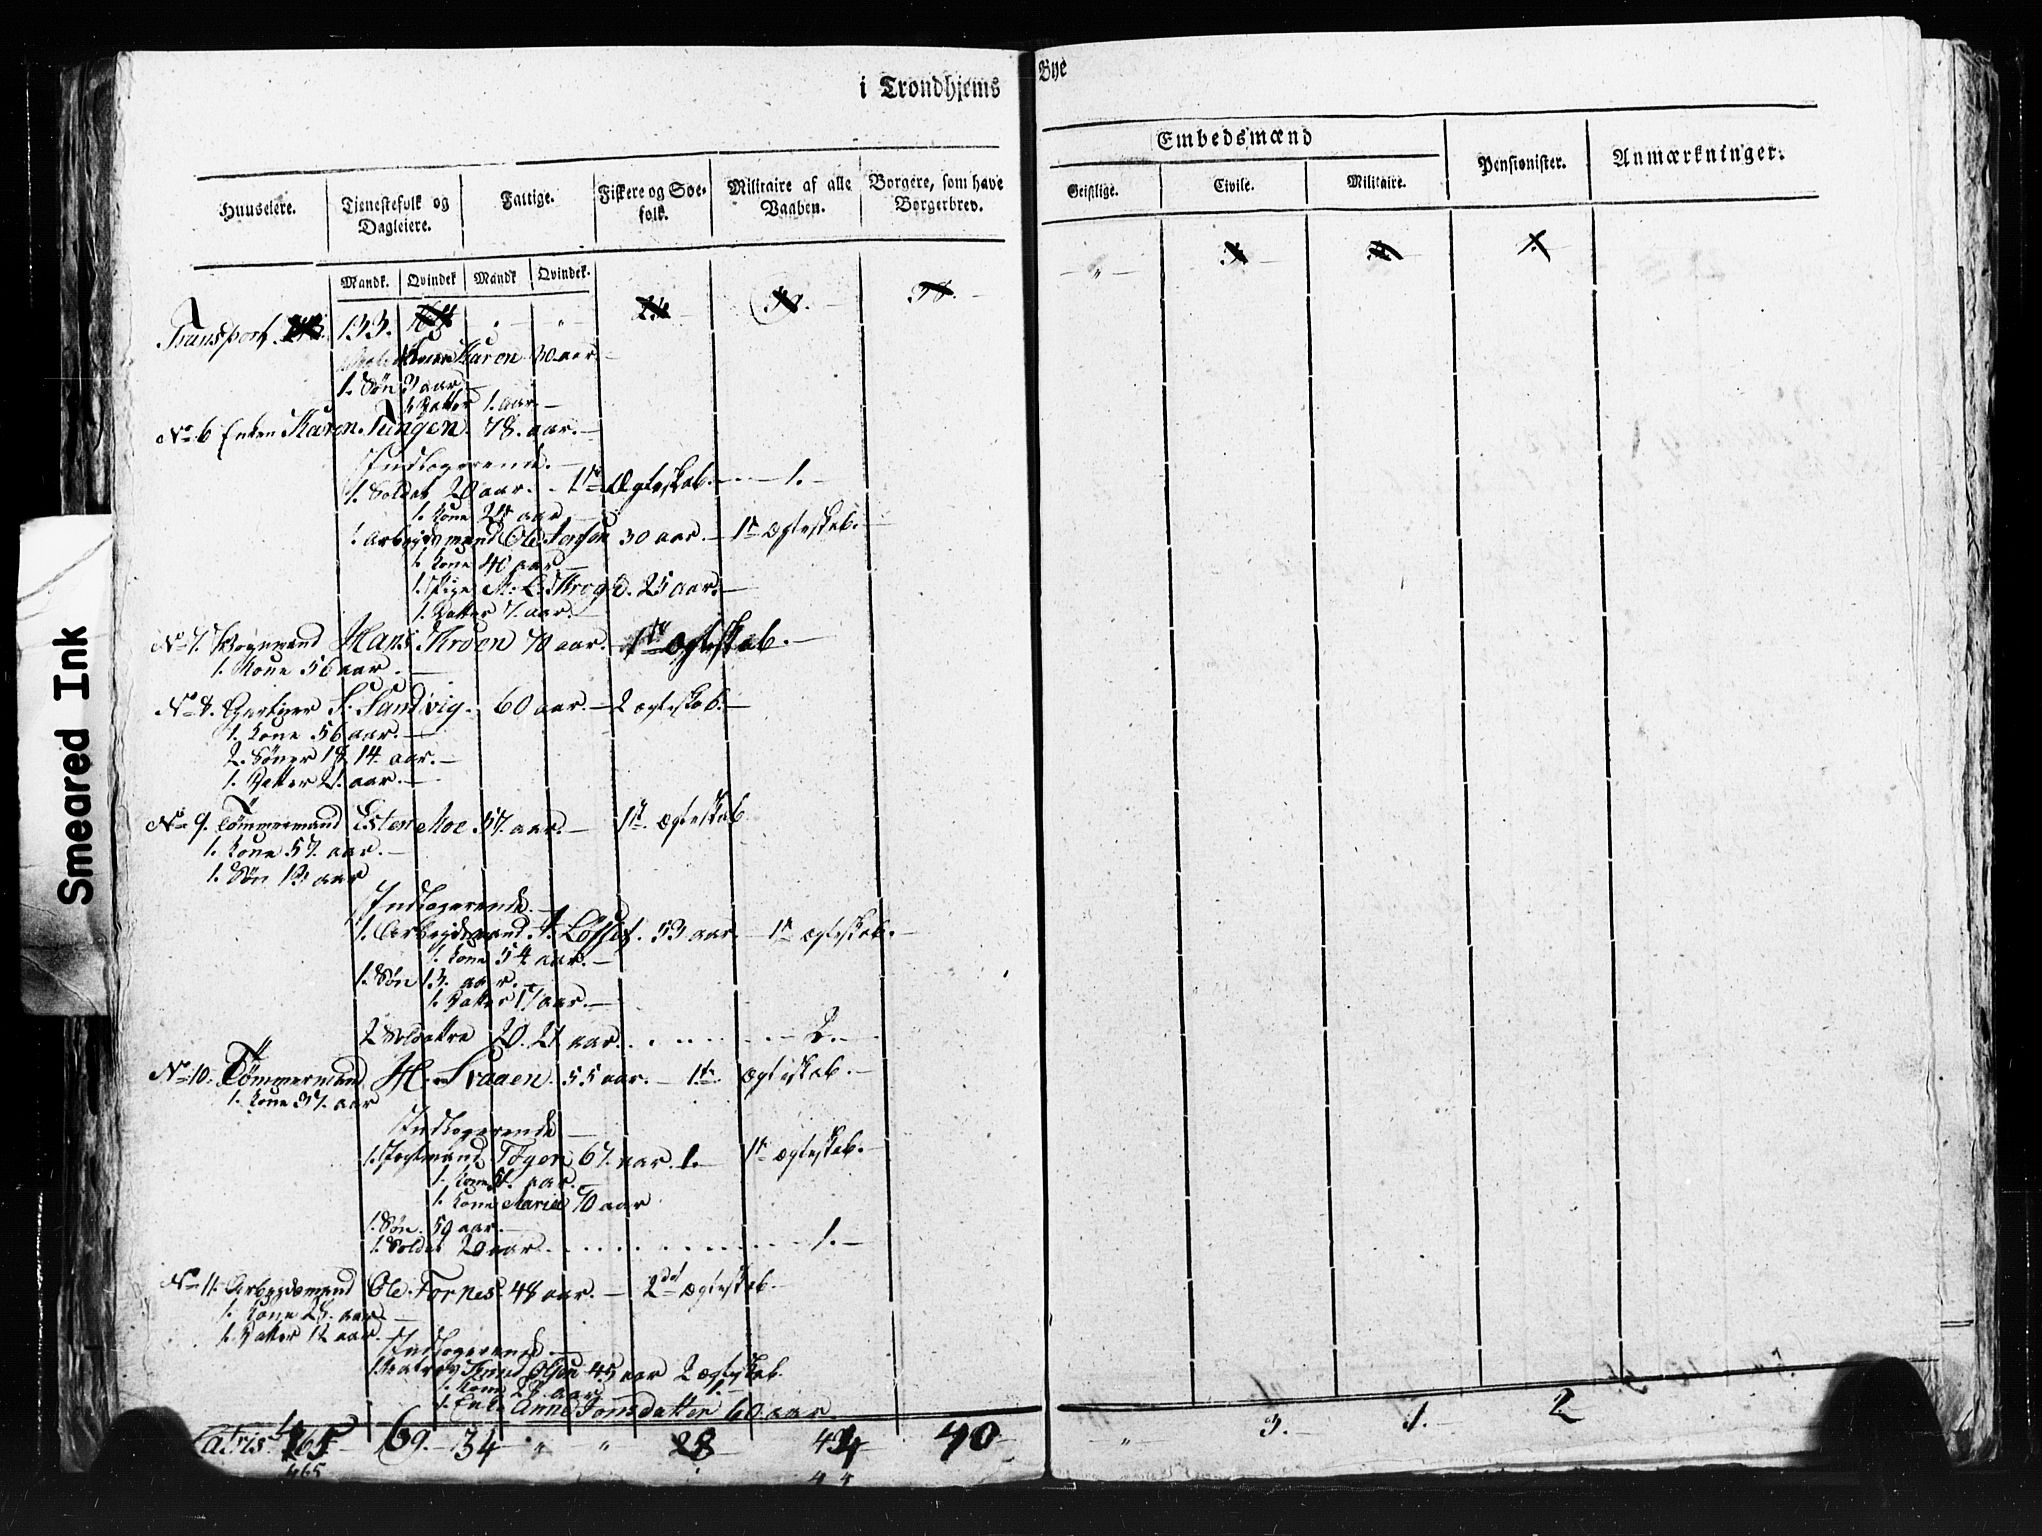 i Trondhjems Bye
Huuseiere.
Tienestefolk og Dagleiere.
Fattige.
Fiskere og Søefolk.
Militaire af alle Vaaben.
Borgere, som have Borgerbrev.
Embedsmænd
Geistlige.
Civile.
Militaire.
Pensionister.
Anmærkninger.
Mandk. Qvindek Mandk Qvindek.
Transport 133.
Karen 30 aar
1. Søn 3 aar
1 Datter 1. aar
No 6 Enken Karen Tungen. 78. aar.
Indlogerende.
1. Soldat 20 aar. 1ste Ægteskab. 1.
1. Kone 24 aar
1 Arbeydsmand Ole 30 aar. 1te Ægteskab.
1. Kone 40 aar
1. Pige M. 25 aar.
1. Datter 7. aar.
No 7. Vognmand Hans Kroen 70 aar. 1ste Ægteskab.
1. Kone 56 aar
No 8. Gartner S. Sandvig. 60 aar. 2 Ægteskab.
1. Kone 56 aar.
2. Sønner 18 14. aar.
1. Datter 21. aar.
No 9. Tømmermand Esten Moe 57. aar. 1te Ægteskab
1. Kone 57. aar.
1. Søn 13 aar
Indlogerende
1. Arbeydsmand 53 aar. 1te Ægteskab.
1. Kone 54 aar.
1. Søn 13. aar.
1. Datter 17 aar.
2 Soldattre 20. 21 aar. 2.
No 10. Tømmermand H. Svaaen. 55 aar. 1te Ægteskab.
1. Kone 37. aar
Indlogerende
Tøgen 67. aar. 1. 1te Ægteskab.
1. Kone 51. aar.
1. Kone Maria 70 aar
1. Søn. 50 aar.
1. Soldat 20 aar. 1.
No 11. Arbeydsmand Ole Fornes. 48 aar. 2det Ægteskab.
1. Kone 28. aar
1. Datter 12 aar.
Indlogerende
1. Matros Olsen 45 aar 2 Ægteskab.
1. Kone 28. aar 1.
1. Enke Anne Jonsdatter 60 aar
Latris. 69. 34 " " 28 44 40 " 3. 1. 2
465
44
Smeared Ink